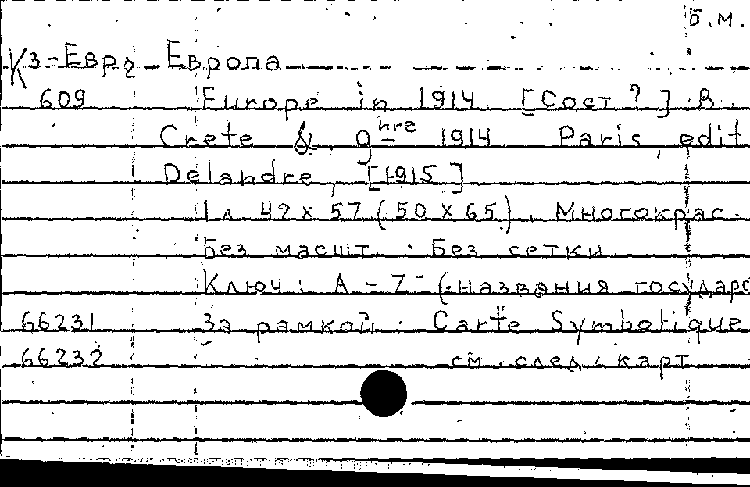 Б.М.
Кз-Евр2 Европа
609 Europe in 1914 [Сост?] B.
Crete & 9bre 1914 Paris, edit
Delandre, [1915]
1л. 42 x 57 (50 x 65). Многокрас.
Без масшт. Без сетки
Ключ: A - Z - (названия государс
66231 За рамкой: Carte Symbolique
66232 см. след. карт